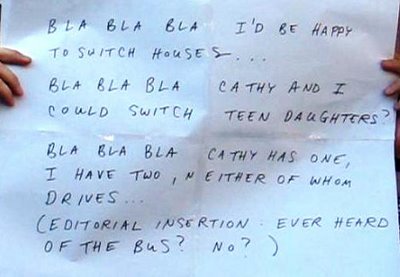 BLA BLA BLA I'D BE HAPPY
TO SWITCH HOUSES...
BLA BLA BLA CATHY AND I
COULD SWITCH TEEN DAUGHTERS?
BLA BLA BLA CATHY HAS ONE,
I HAVE TWO, NEITHER OF WHOM
DRIVES...
(EDITORIAL INSERTION. EVER HEARD
OF THE BUS? NO?)